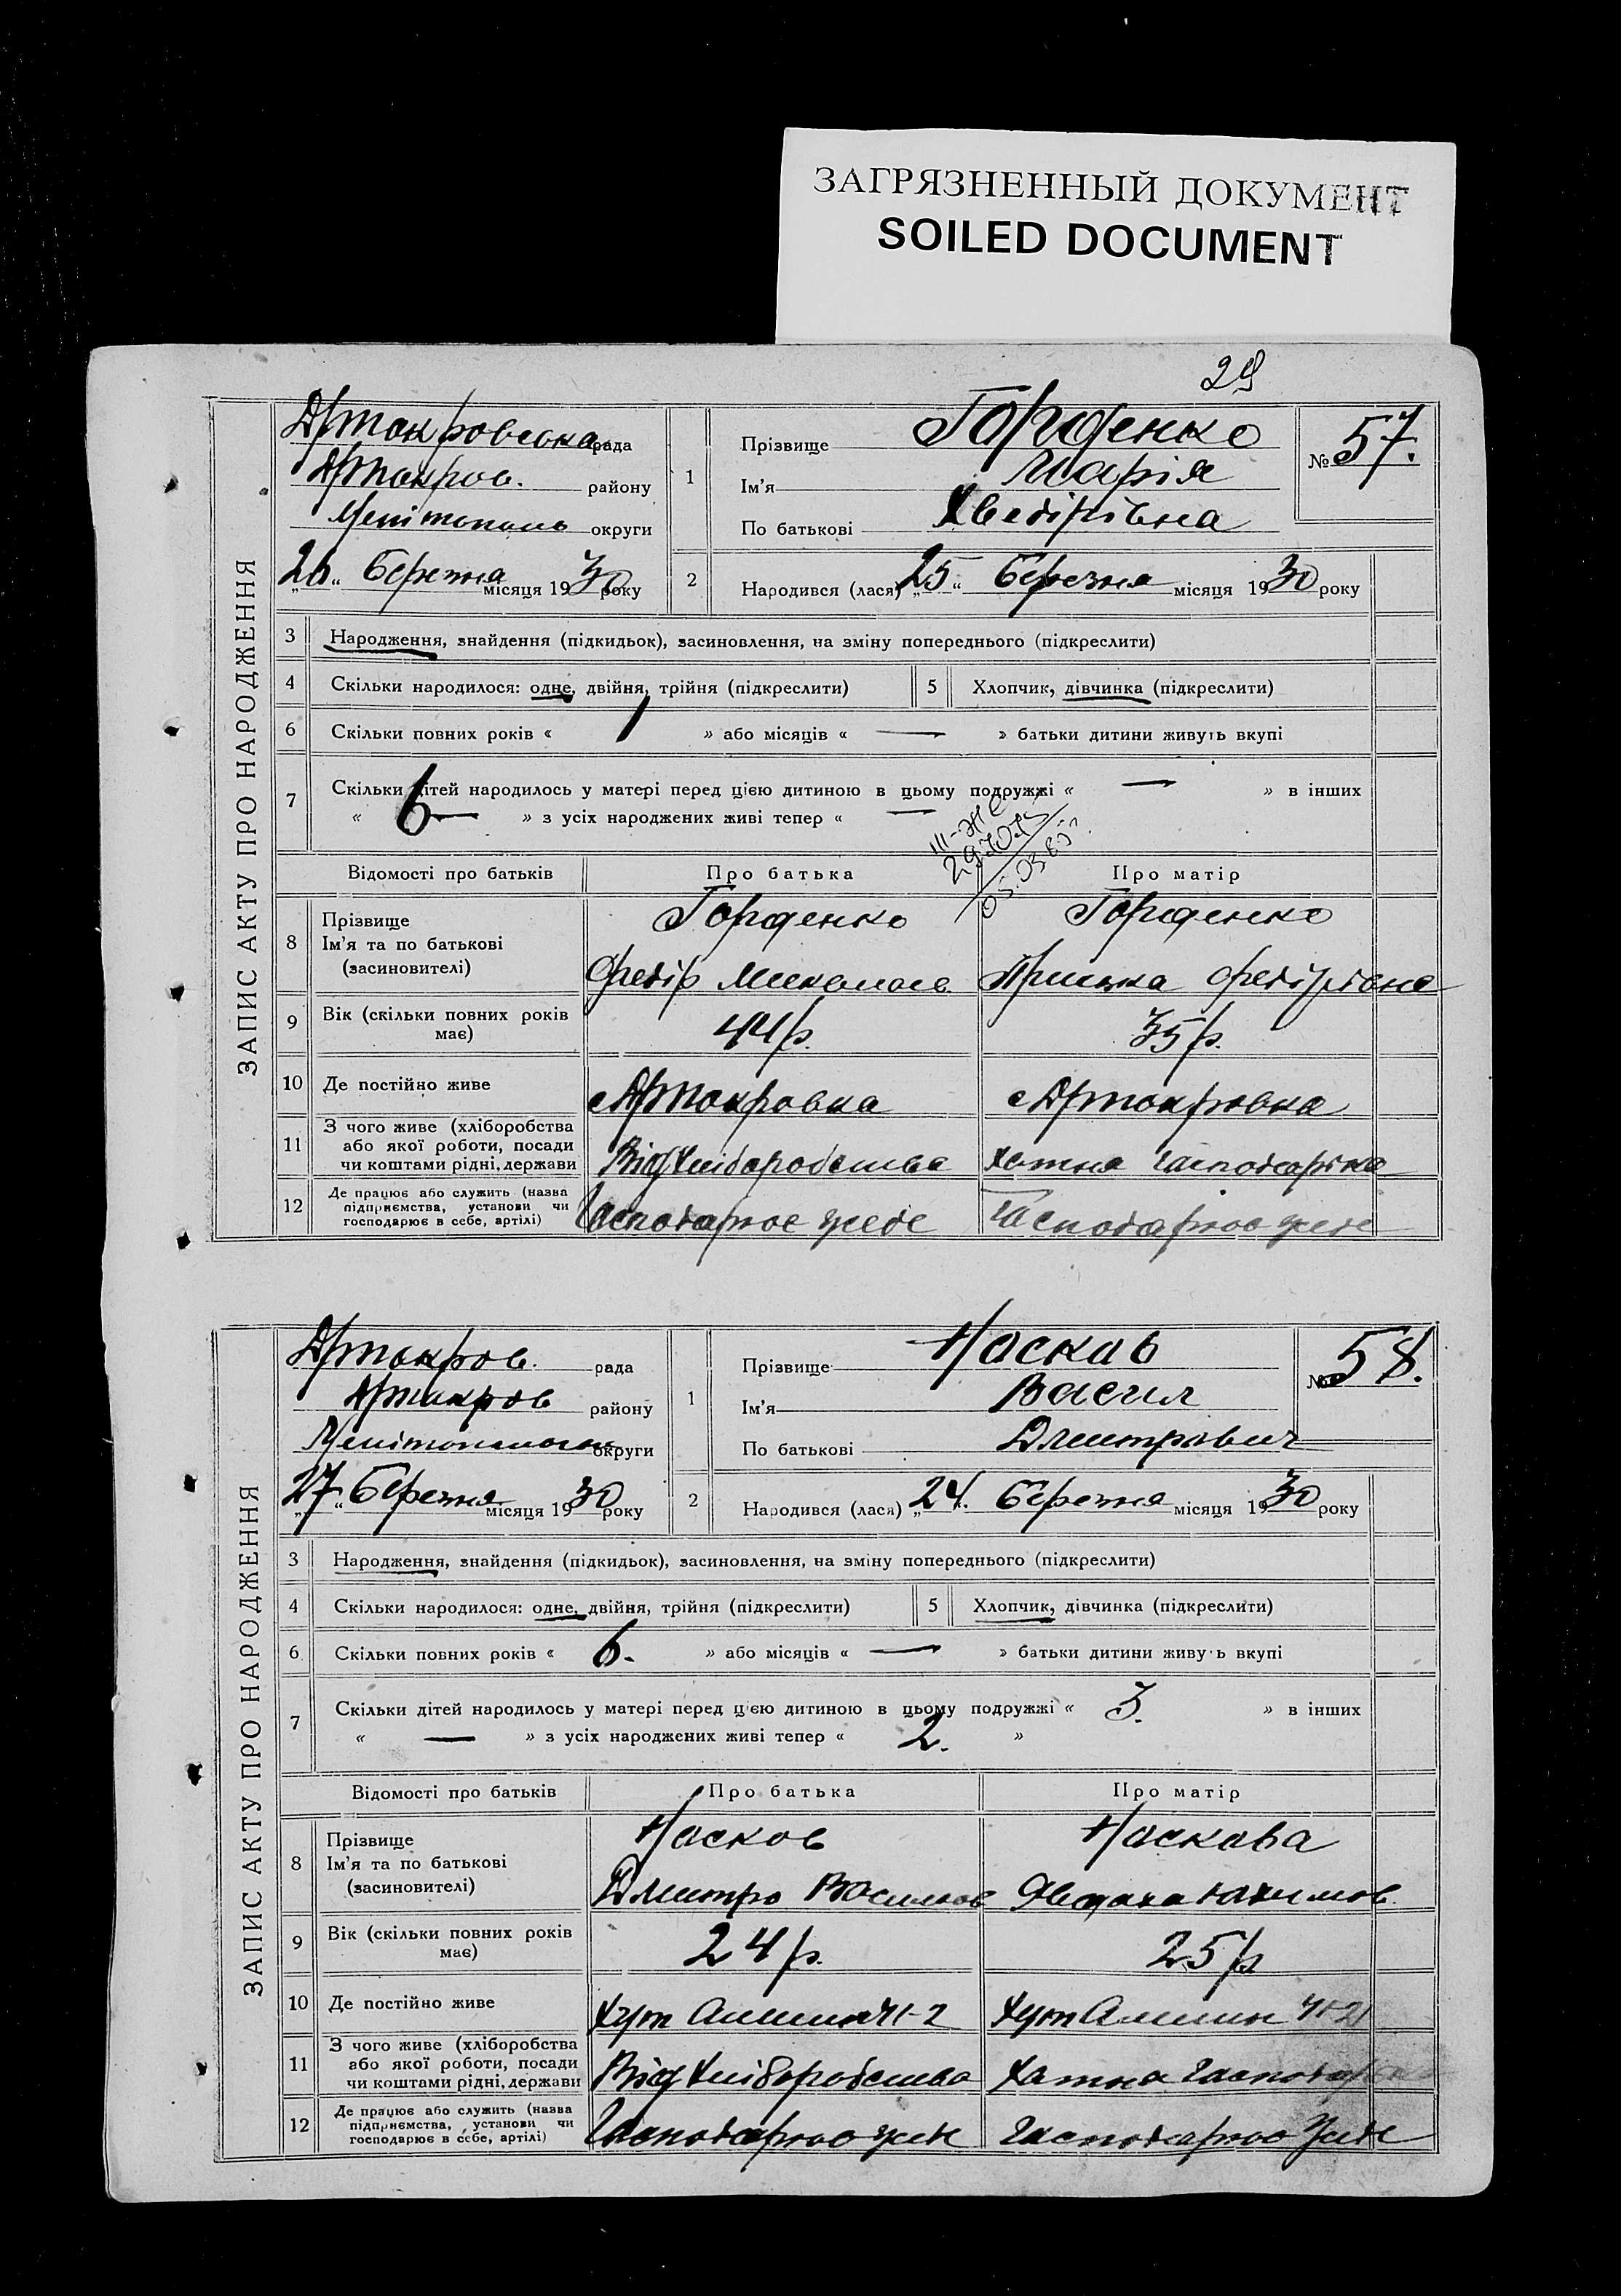 ЗАГРЯЗНЕННЫЙ ДОКУМЕНТ
SOILED DOCUMENT
29
ЗАПИС АКТУ ПРО НАРОДЖЕННЯ
рада
району
округи
26 „ Березня місяця 1930 року
1 Прізвище Горденко
Ім’я Марія
По батькові Хведірівна
№ 57.
2 Народився (лася) „25“ Березня місяця 1930 року
3 Народження, знайдення (підкидьок), засиновлення, на зміну попереднього (підкреслити)
4 Скільки народилося: одне, двійня, трійня (підкреслити)
5 Хлопчик, дівчинка (підкреслити)
6 Скільки повних років « 1 » або місяців « — » батьки дитини живуть вкупі
7 Скільки дітей народилось у матері перед цією дитиною в цьому подружжі « — » в інших
« 6 — » з усіх народжених живі тепер « —
III-ЖС
05.03.85
Відомості про батьків Про батька Про матір
8 Прізвище
Ім’я та по батькові
(засиновителі)
Горденко
Федір Миколаєв
Горденко
Федірівна
9 Вік (скільки повних років
має)
44 р.
35 р.
10 Де постійно живе
11 З чого живе (хліборобства
або якої роботи, посади
чи коштами рідні, держави
Від Хліборобства
Хатня Гасподарка
12 Де працює або служить (назва
підприємства, установи чи
господарює в себе, артілі)
Гасподарює
Гасподарює
ЗАПИС АКТУ ПРО НАРОДЖЕННЯ
рада
району
округи
27 „ Березня місяця 1930 року
1 Прізвище Насков
Ім’я Васил
По батькові Дмитрович
№ 58.
2 Народився (лася) „24. Березня місяця 1930 року
3 Народження, знайдення (підкидьок), засиновлення, на зміну попереднього (підкреслити)
4 Скільки народилося: одне, двійня, трійня (підкреслити)
5 Хлопчик, дівчинка (підкреслити)
6 Скільки повних років « 6. » або місяців « — » батьки дитини живуть вкупі
7 Скільки дітей народилось у матері перед цією дитиною в цьому подружжі « 3. » в інших
« — » з усіх народжених живі тепер « 2. »
Відомості про батьків Про батька Про матір
8 Прізвище
Ім’я та по батькові
(засиновителі)
Насков
Дмитро Васильов
Наскова
Явдоха Юхимов
9 Вік (скільки повних років
має)
24 р.
25 р
10 Де постійно живе
Хут
Хут
11 З чого живе (хліборобства
або якої роботи, посади
чи коштами рідні, держави
Від Хліборобства
Хатня Гасподарка
12 Де працює або служить (назва
підприємства, установи чи
господарює в себе, артілі)
Гасподарює
Гасподарює